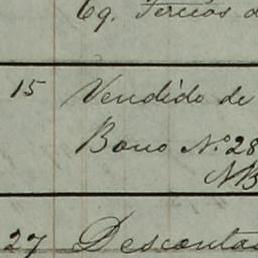 69. Tercios d
15 Vendido de
Bono Nº 28
NB
27 Descontad